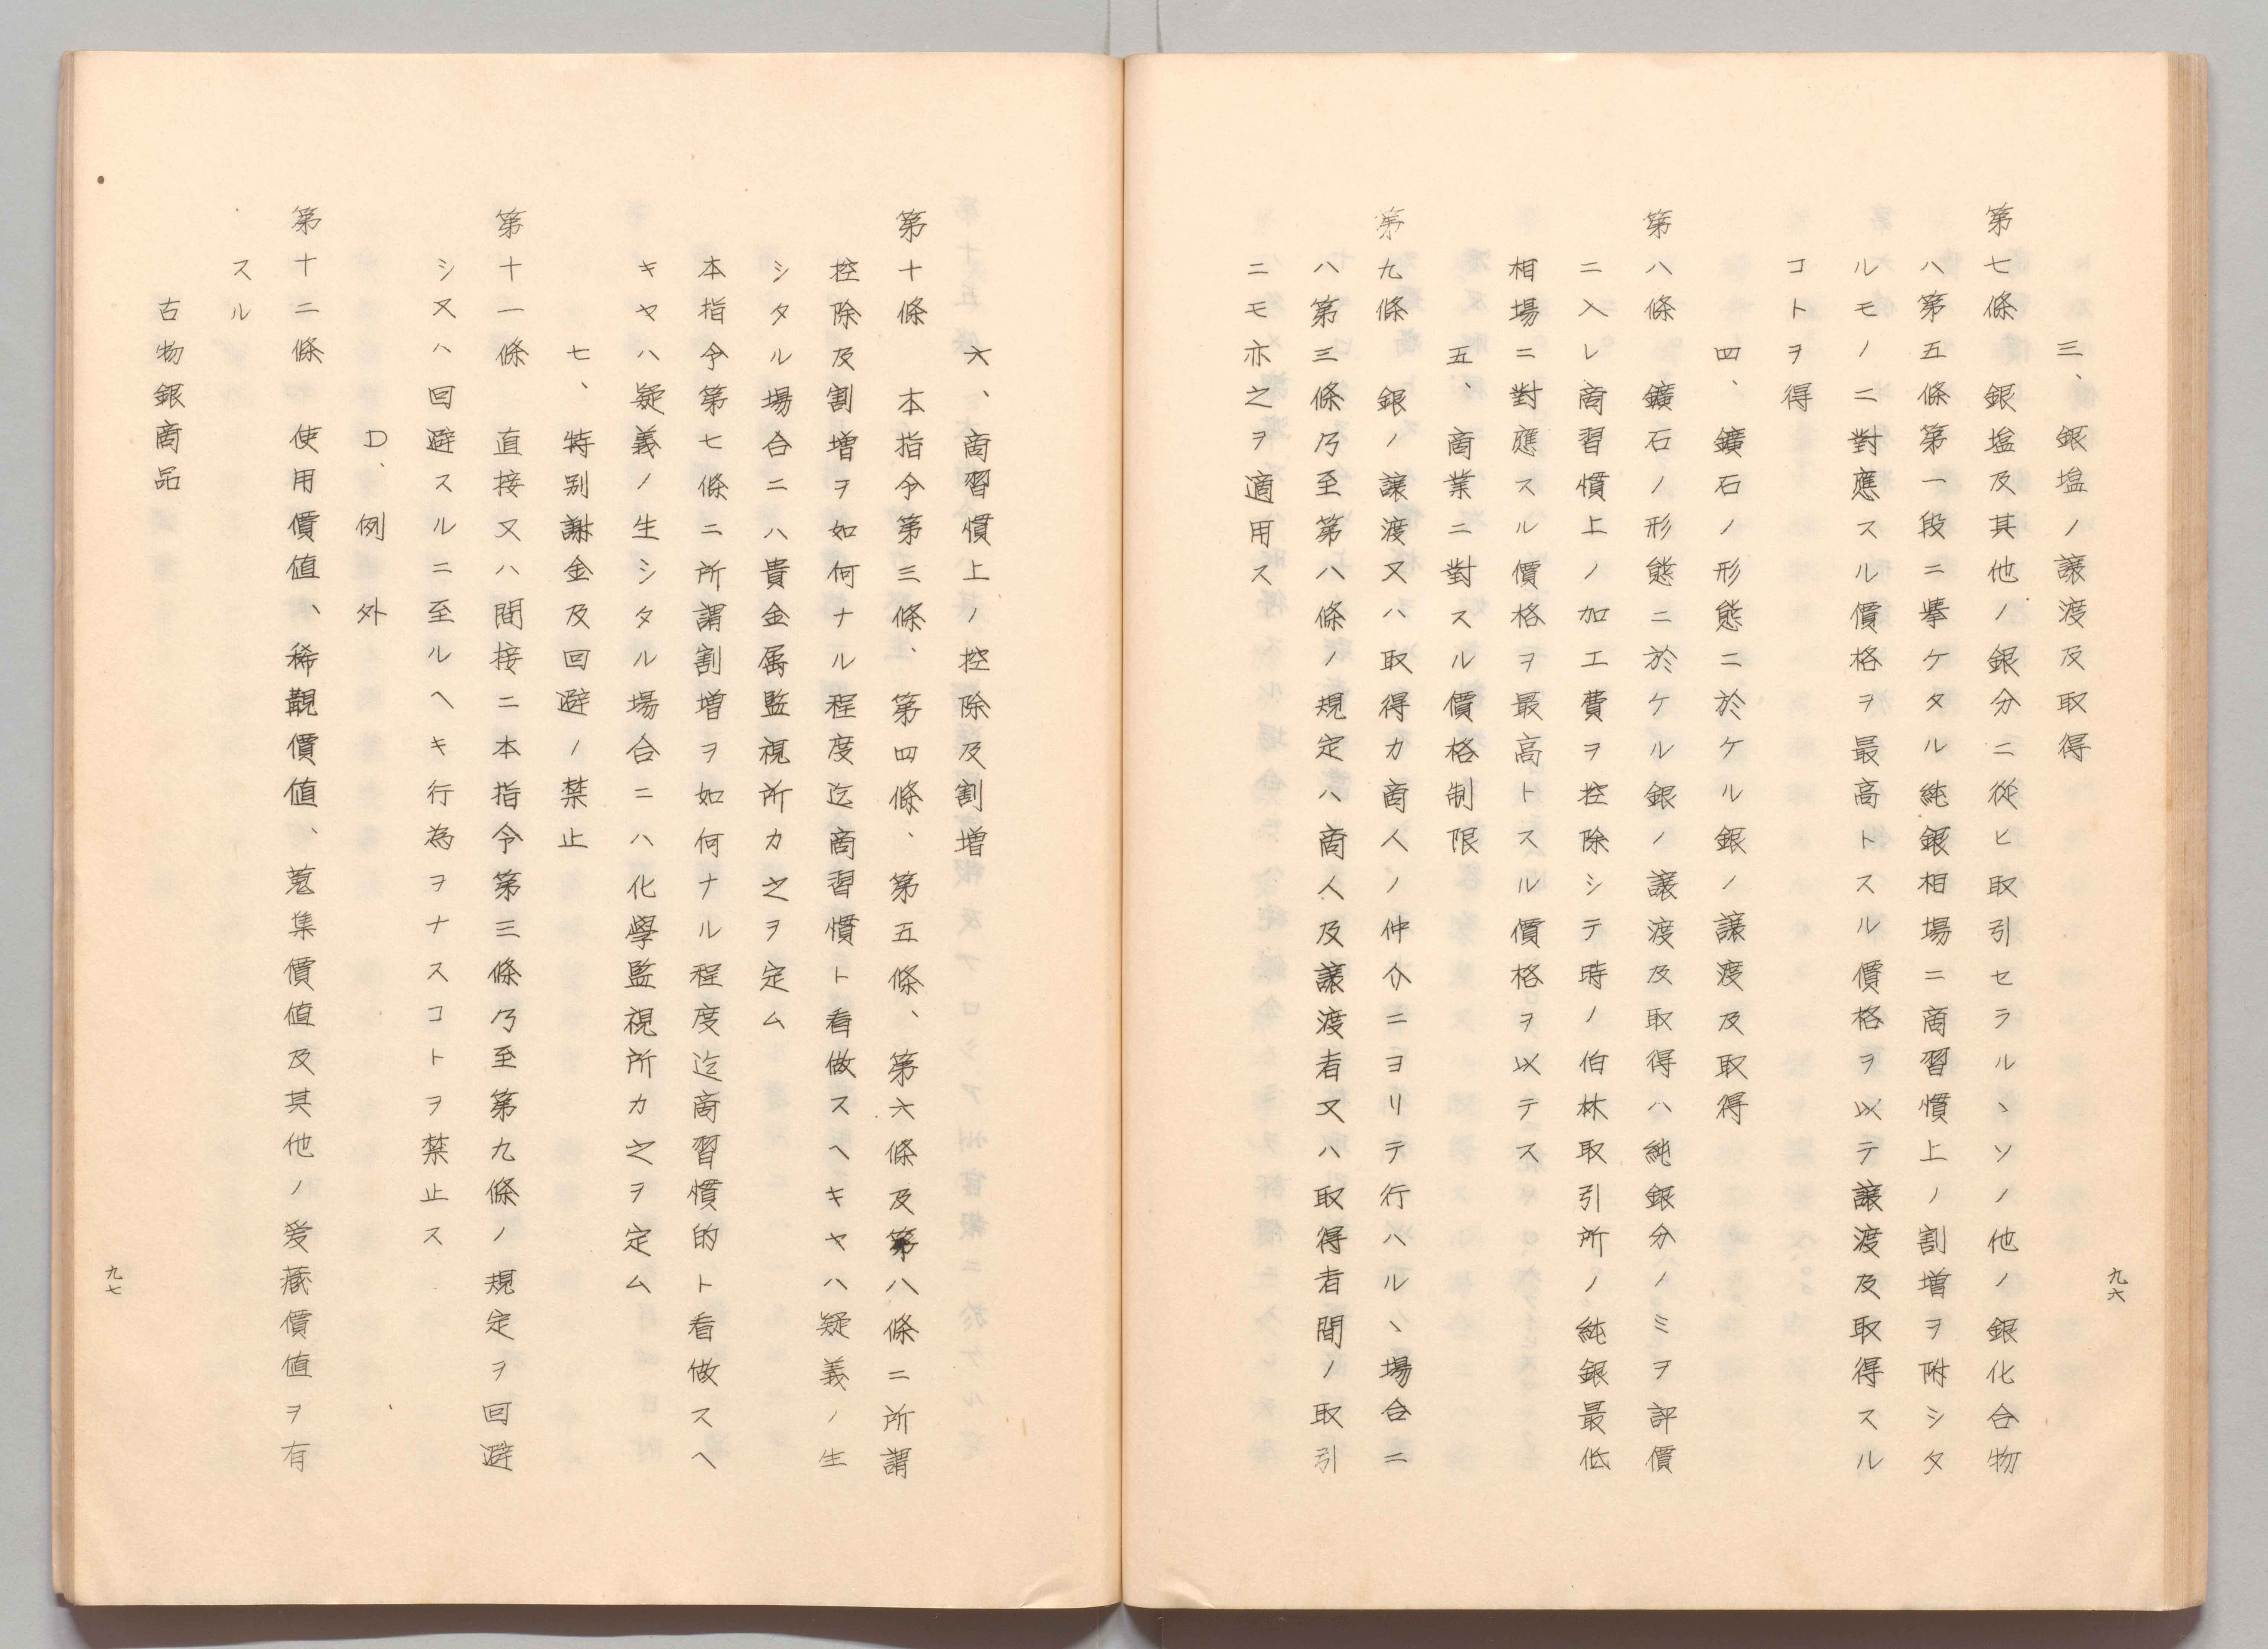 九六
三、銀塩ノ譲渡及取得
第七條　銀塩及其他ノ銀分ニ從ヒ取引セラルヽソノ他ノ銀化合物
ハ第五條第一段ニ擧ケタル純銀相場ニ商習慣上ノ割増ヲ附シタ
ルモノニ對應スル價格ヲ最高トスル價格ヲ以テ譲渡及取得スル
コトヲ得
四、鑛石ノ形態ニ於ケル銀ノ譲渡及取得
第八條　鑛石ノ形態ニ於ケル銀ノ譲渡及取得ハ純銀分ノミヲ評價
ニ入レ商習慣上ノ加工費ヲ控除シテ時ノ伯林取引所ノ純銀最低
相場ニ對應スル價格ヲ最高トスル價格ヲ以テス
五、商業ニ對スル價格制限
第九條　銀ノ譲渡又ハ取得カ商人ノ仲介ニヨリテ行ハルヽ場合ニ
ハ第三條乃至第八條ノ規定ハ商人及譲渡者又ハ取得者間ノ取引
ニモ亦之ヲ適用ス
六、商習慣上ノ控除及割増
第十條　本指令第三條、第四條、第五條、第六條及第八條ニ所謂
控除及割増ヲ如何ナル程度迄商習慣ト看做スヘキヤハ疑義ノ生
シタル場合ニハ貴金属監視所カ之ヲ定ム
本指令第七條ニ所謂割増ヲ如何ナル程度迄商習慣的ト看做スヘ
キヤハ疑義ノ生シタル場合ニハ化學監視所カ之ヲ定ム
七、特別謝金及回避ノ禁止
第十一條　直接又ハ間接ニ本指令第三條乃至第九條ノ規定ヲ回避
シ又ハ回避スルニ至ルヘキ行為ヲナスコトヲ禁止ス
D、例外
第十二條　使用價値、稀覯價値、蒐集價値及其他ノ爱蔵價値ヲ有
スル
古物銀商品
九七